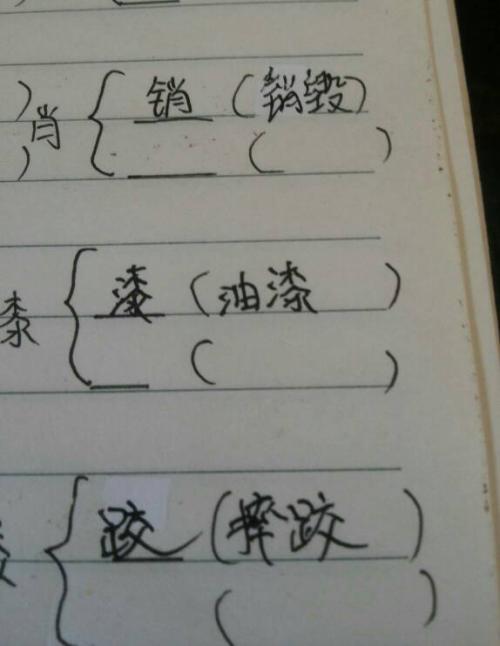 肖 { 销 (销毁)
( )
桼 { 漆 (油漆 )
( )
{ 跤 (摔跤 )
( )